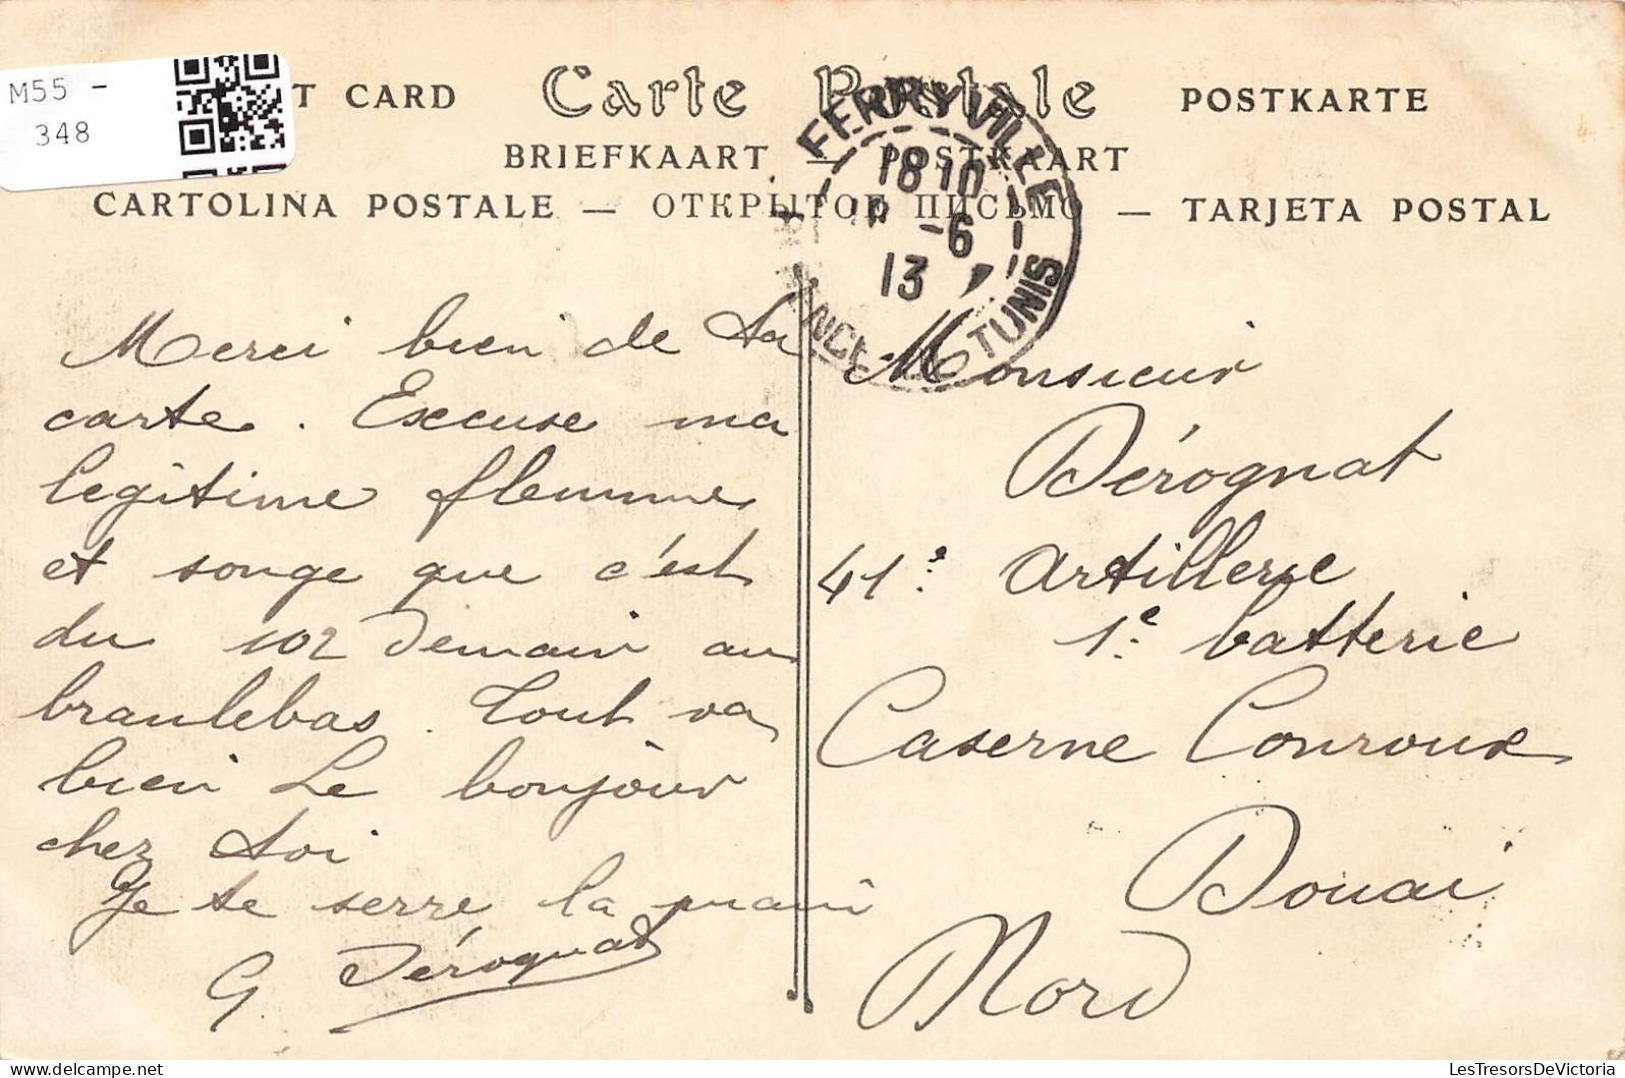 M55 -
348
T CARD
Carte Postale
POSTKARTE
BRIEFKAART — POSTKAART
CARTOLINA POSTALE — ОТКРЫТОЕ ПИСЬМО — TARJETA POSTAL
FERRYVILLE
18 10
-6
13
TUNIS
Merci bien de ta
carte. Excuse ma
legitime flemme
et songe que c'est
du 102 demain au
branlebas. Tout va
bien Le bonjour
chez toi
Je te serre la main
G. Dérognat
Monsieur
Dérognat
41e artillerie
1e batterie
Caserne Conroux
Douai
Nord
LesTresorsDeVictoria